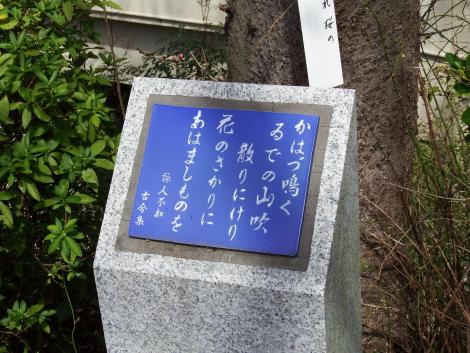 かはづ鳴く
ゐでの山吹
散りにけり
花のさかりに
あはましものを
詠人不知
古今集
れ桜の